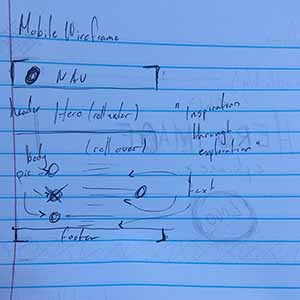 Mobile Wireframe
NAV
header Hero (roll over)
"Inspiration
through
exploration"
(roll over)
body
pic
text
footer